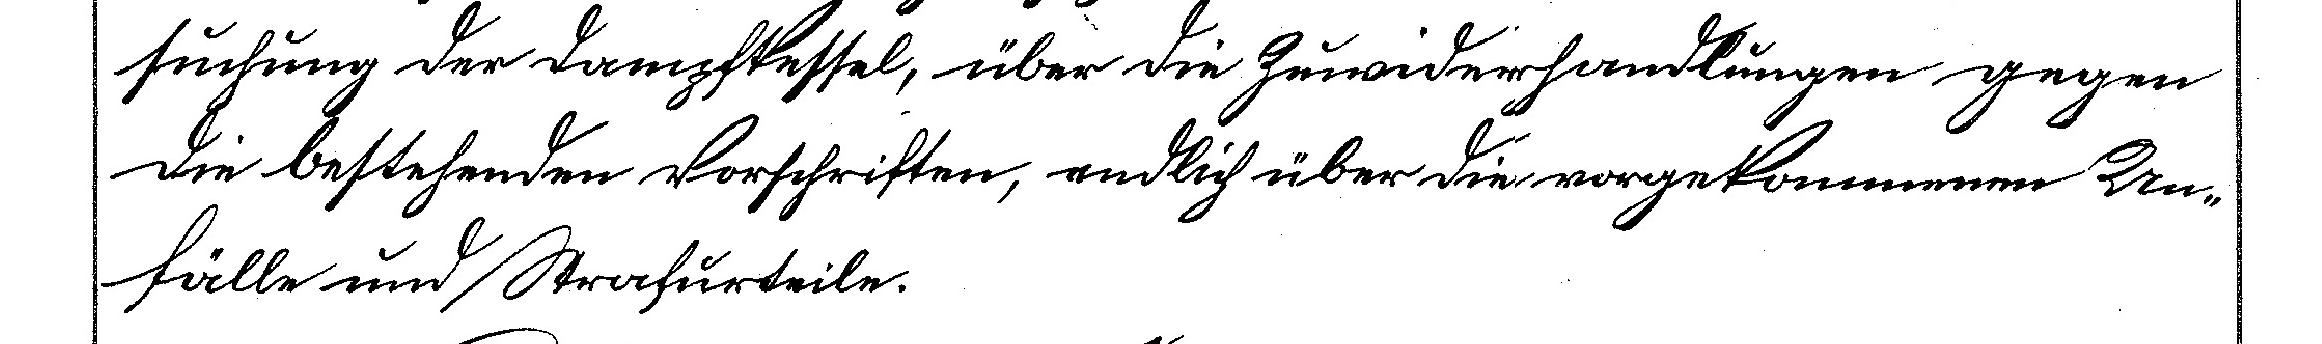 suchung der Dampfkessel, über die Zuwiderhandlungen gegen
die bestehenden Vorschriften, endlich über die vorgekommenen Un-
fälle und Strafurteile.